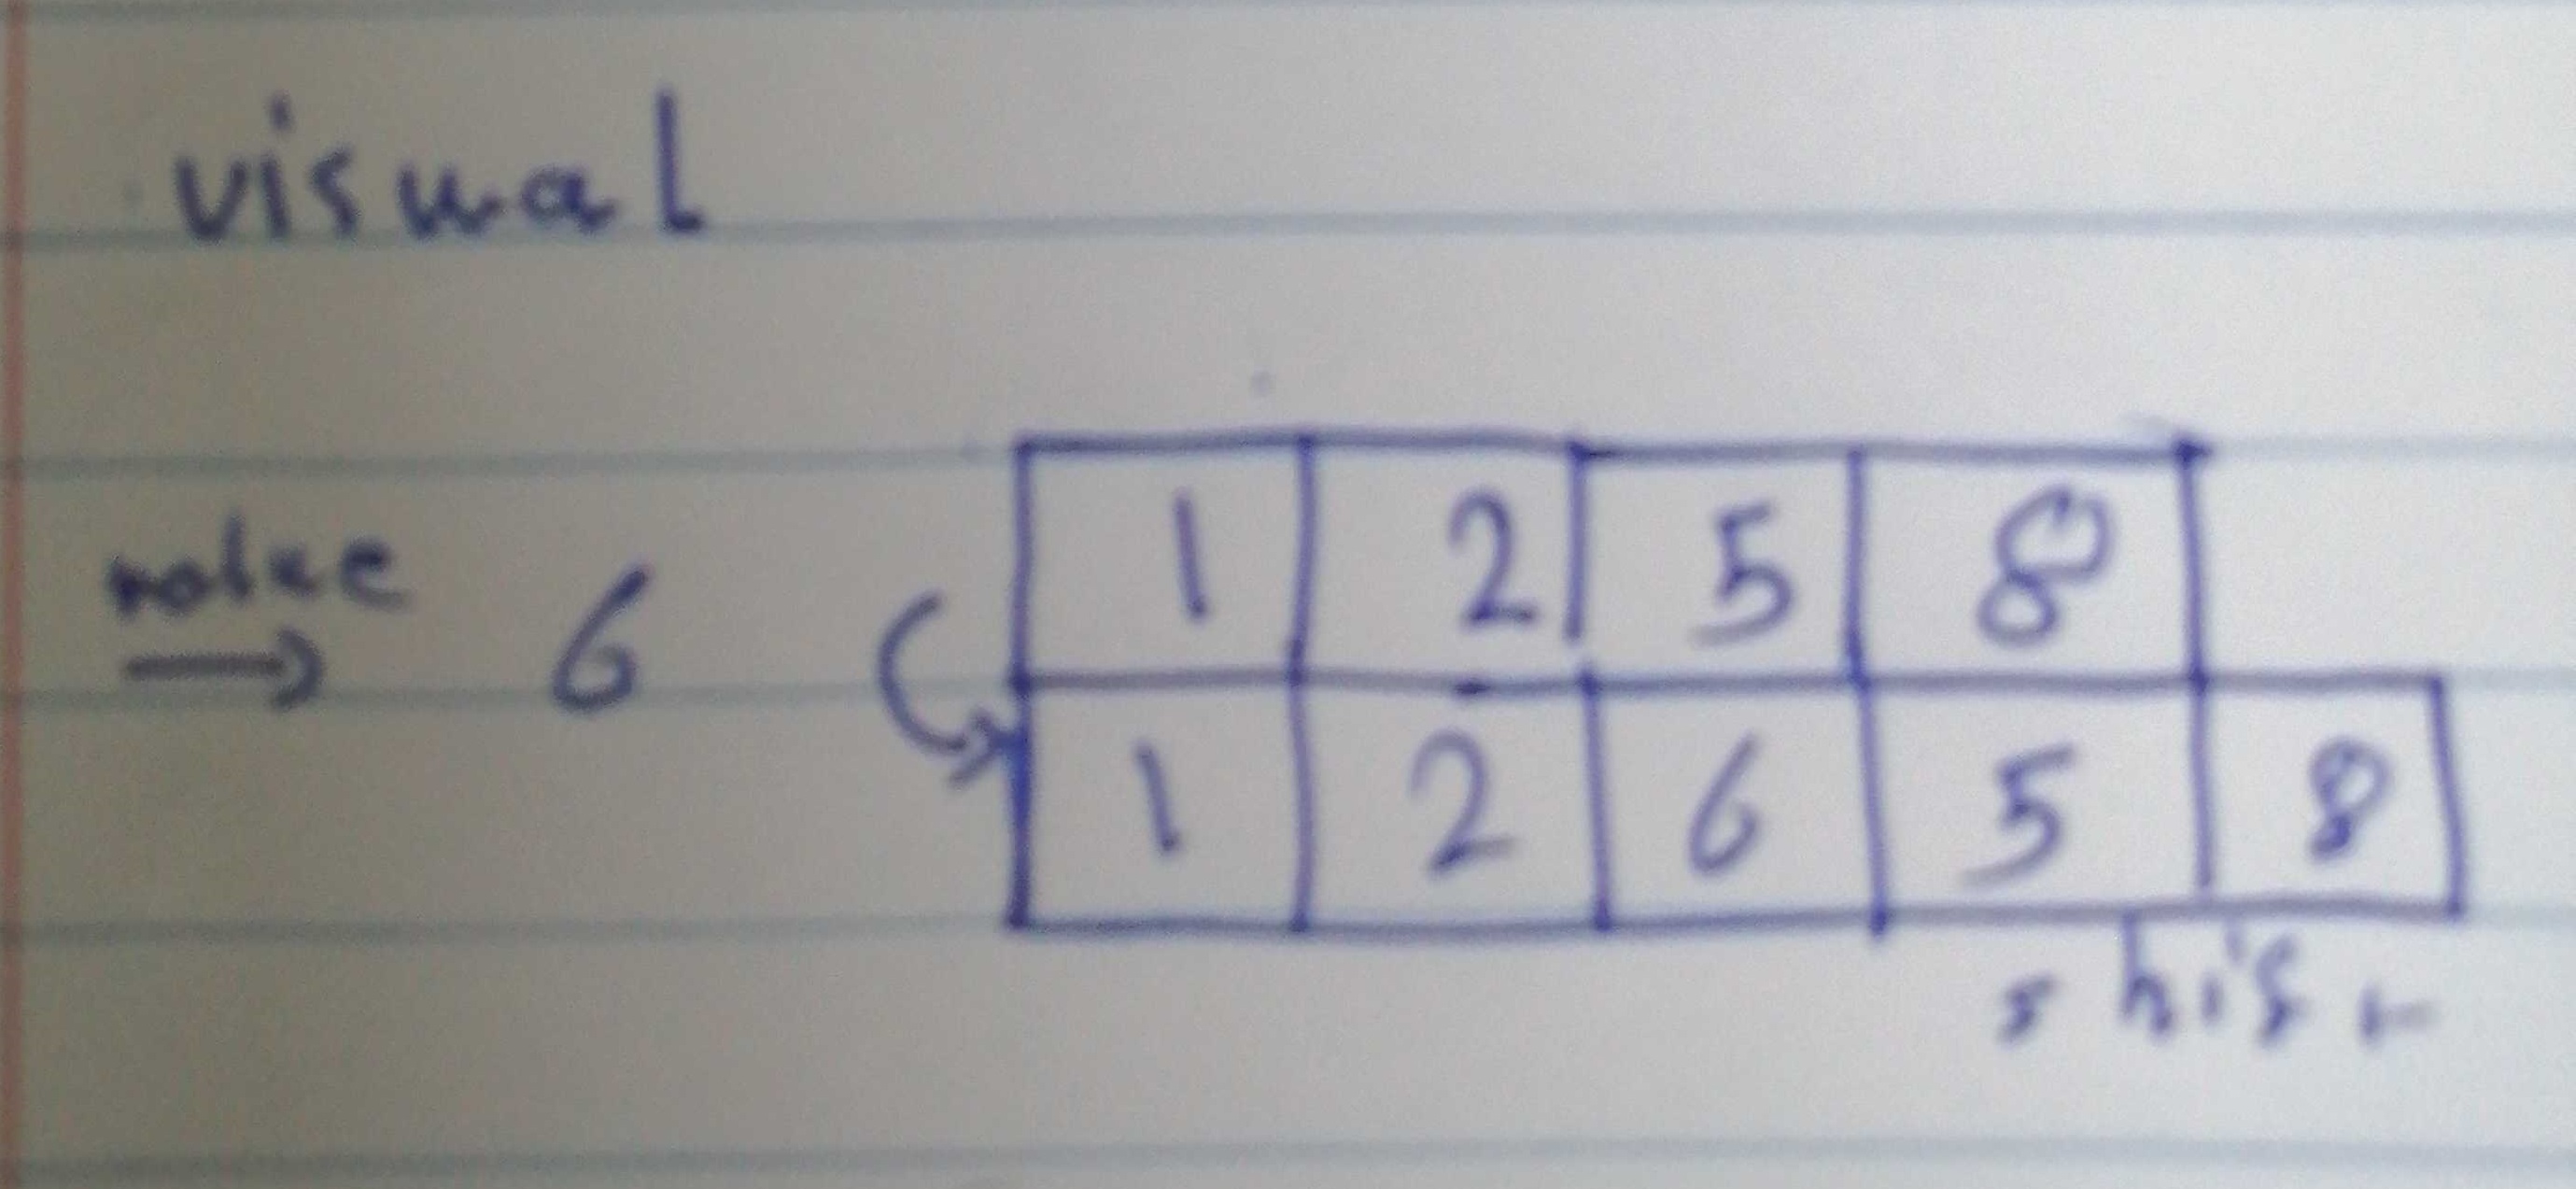 visual
value
→ 6
1 2 5 8
1 2 6 5 8
shift